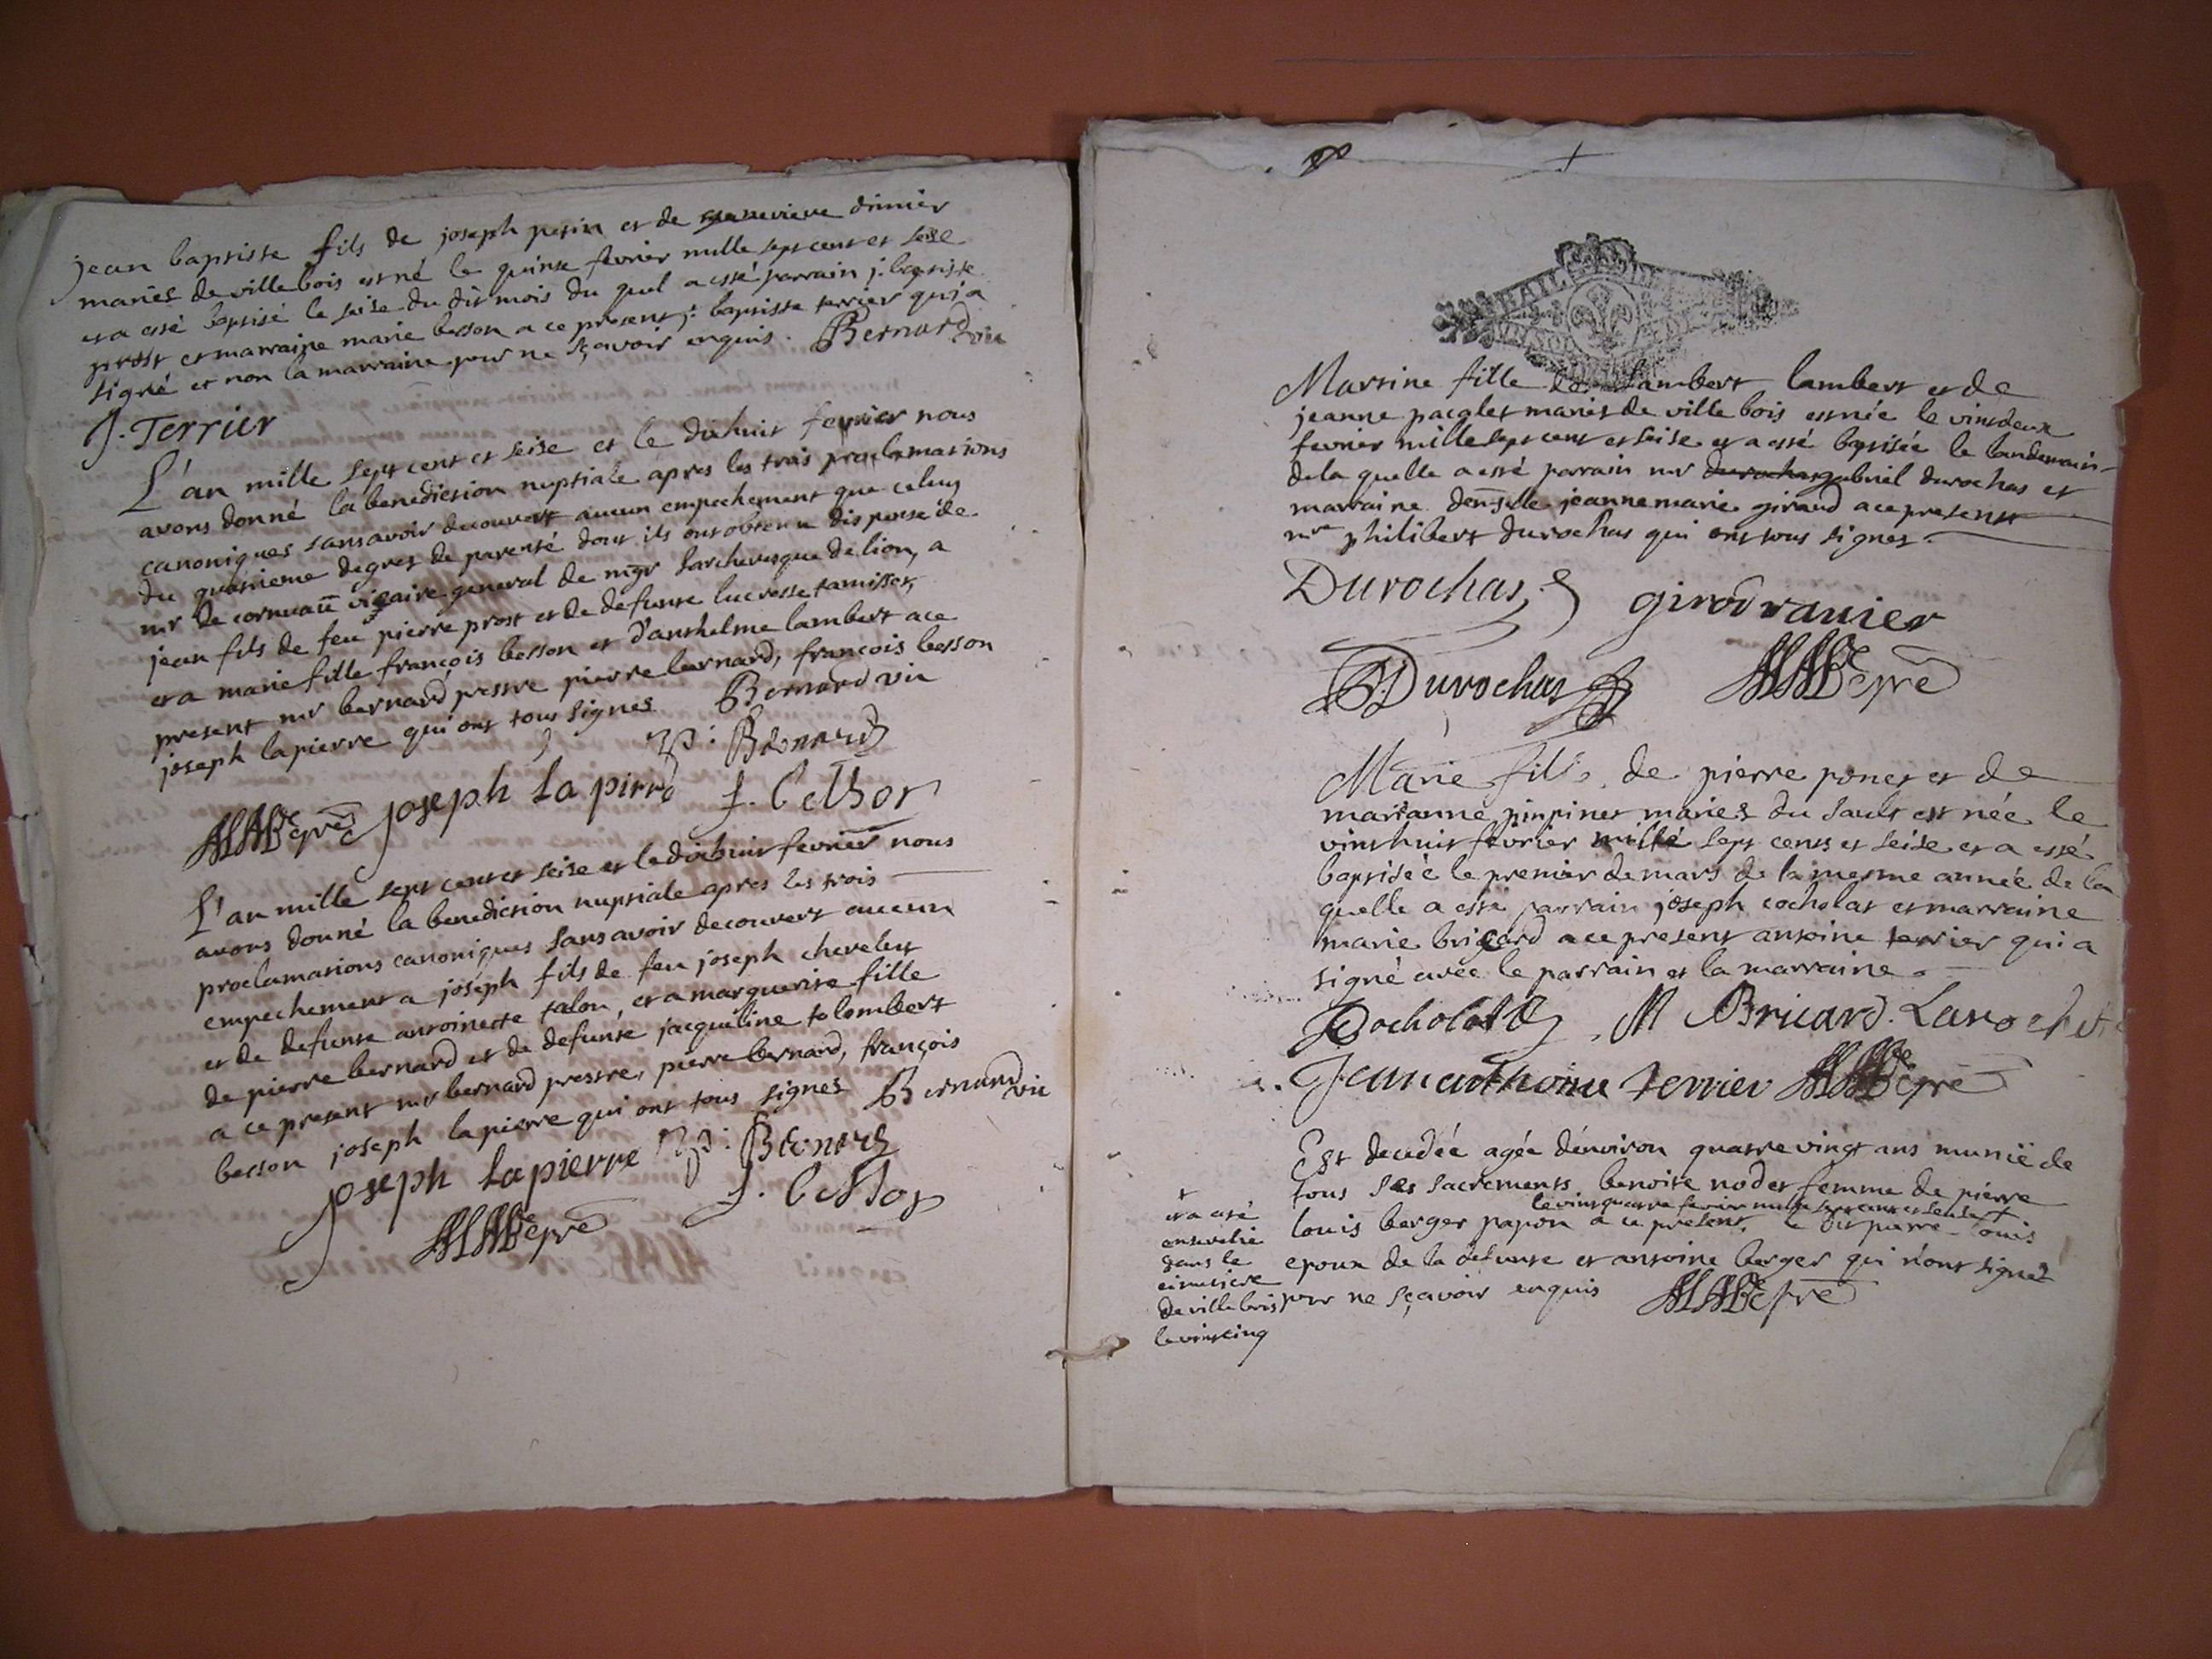 jean baptiste fils de joseph perin et de genevieve
mariés de villebois est né le quinse fevrier mille sept cent et seise
et a esté baptisé le seise du dit mois du quel a esté parrain j. baptiste
prost et marraine marie besson a ce present j: baptiste terrier qui a
signé et non la marraine pour ne sçavoir enquis. Bernard vic
J. Terrier
L'an mille sept cent et seise et le dixhuit fevrier nous
avons donné la benediction nuptiale apres les trois proclamations
canoniques sans avoir decouvert aucun empechement que celuy
du quatrieme degret de parenté dont ils ont obtenu dispense de
mr de vicaire general de mgr larchevesque de lion, a
jean fils de feu pierre prost et de defunte lucresse tamisser,
et a marie fille françois besson et d'anthelme lambert a ce
present mr bernard prestre pierre bernard, françois besson
joseph lapierre qui ont tous signes Bernard vic
p: Bernard
joseph La pirre
L'an mille sept cent et seise et le dixhuit fevrier nous
avons donné la benediction nuptiale apres les trois
proclamations canoniques sans avoir decouvert aucun
empechement a joseph fils de feu joseph chevelut
et de defunte antoinette talon, et a marguerite fille
de pierre bernard et de defunte jacqueline tolombert
a ce present mr bernard prestre, pierre bernard, françois
besson joseph lapierre qui ont tous signes Bernard vic
joseph Lapierre p: Bernard
Martine fille de Lambert lambert et de
jeanne pacalet mariés de ville bois est née le vint deux
fevrier mille sept cent et seise et a esté baptisée le landemain
de la quelle a esté parrain mr gabriel durochas et
marraine demslle jeanne marie giraud a ce present
mre philibert durochas qui ont tous signes.
Durochas girod ravier
Durochas
Marie fille de pierre poncet et de
marianne pinpinet mariés du sault est née le
vint huit fevrier mille sept cents et seise et a esté
baptisée le premier de mars de la mesme année de la
quelle a esté parrain joseph cocholat et marraine
marie bricard a ce present antoine terrier qui a
signé avec le parrain et la marraine.
JCocholat M Bricard. Laroche
Jean anthoine terrier
Est decedée agée d'environ quatre vingt ans munië de
tous ses sacrements benoite nodet femme de pierre
le vint quatre fevrier mille sept cent et seise
louis berger papon a ce present, le dit pierre louis
epoux de la defunte et antoine berger qui n'ont signez
pour ne sçavoir enquis
et a esté
ensevelie
dans le
cimetiere
de villebois
le vint cinq